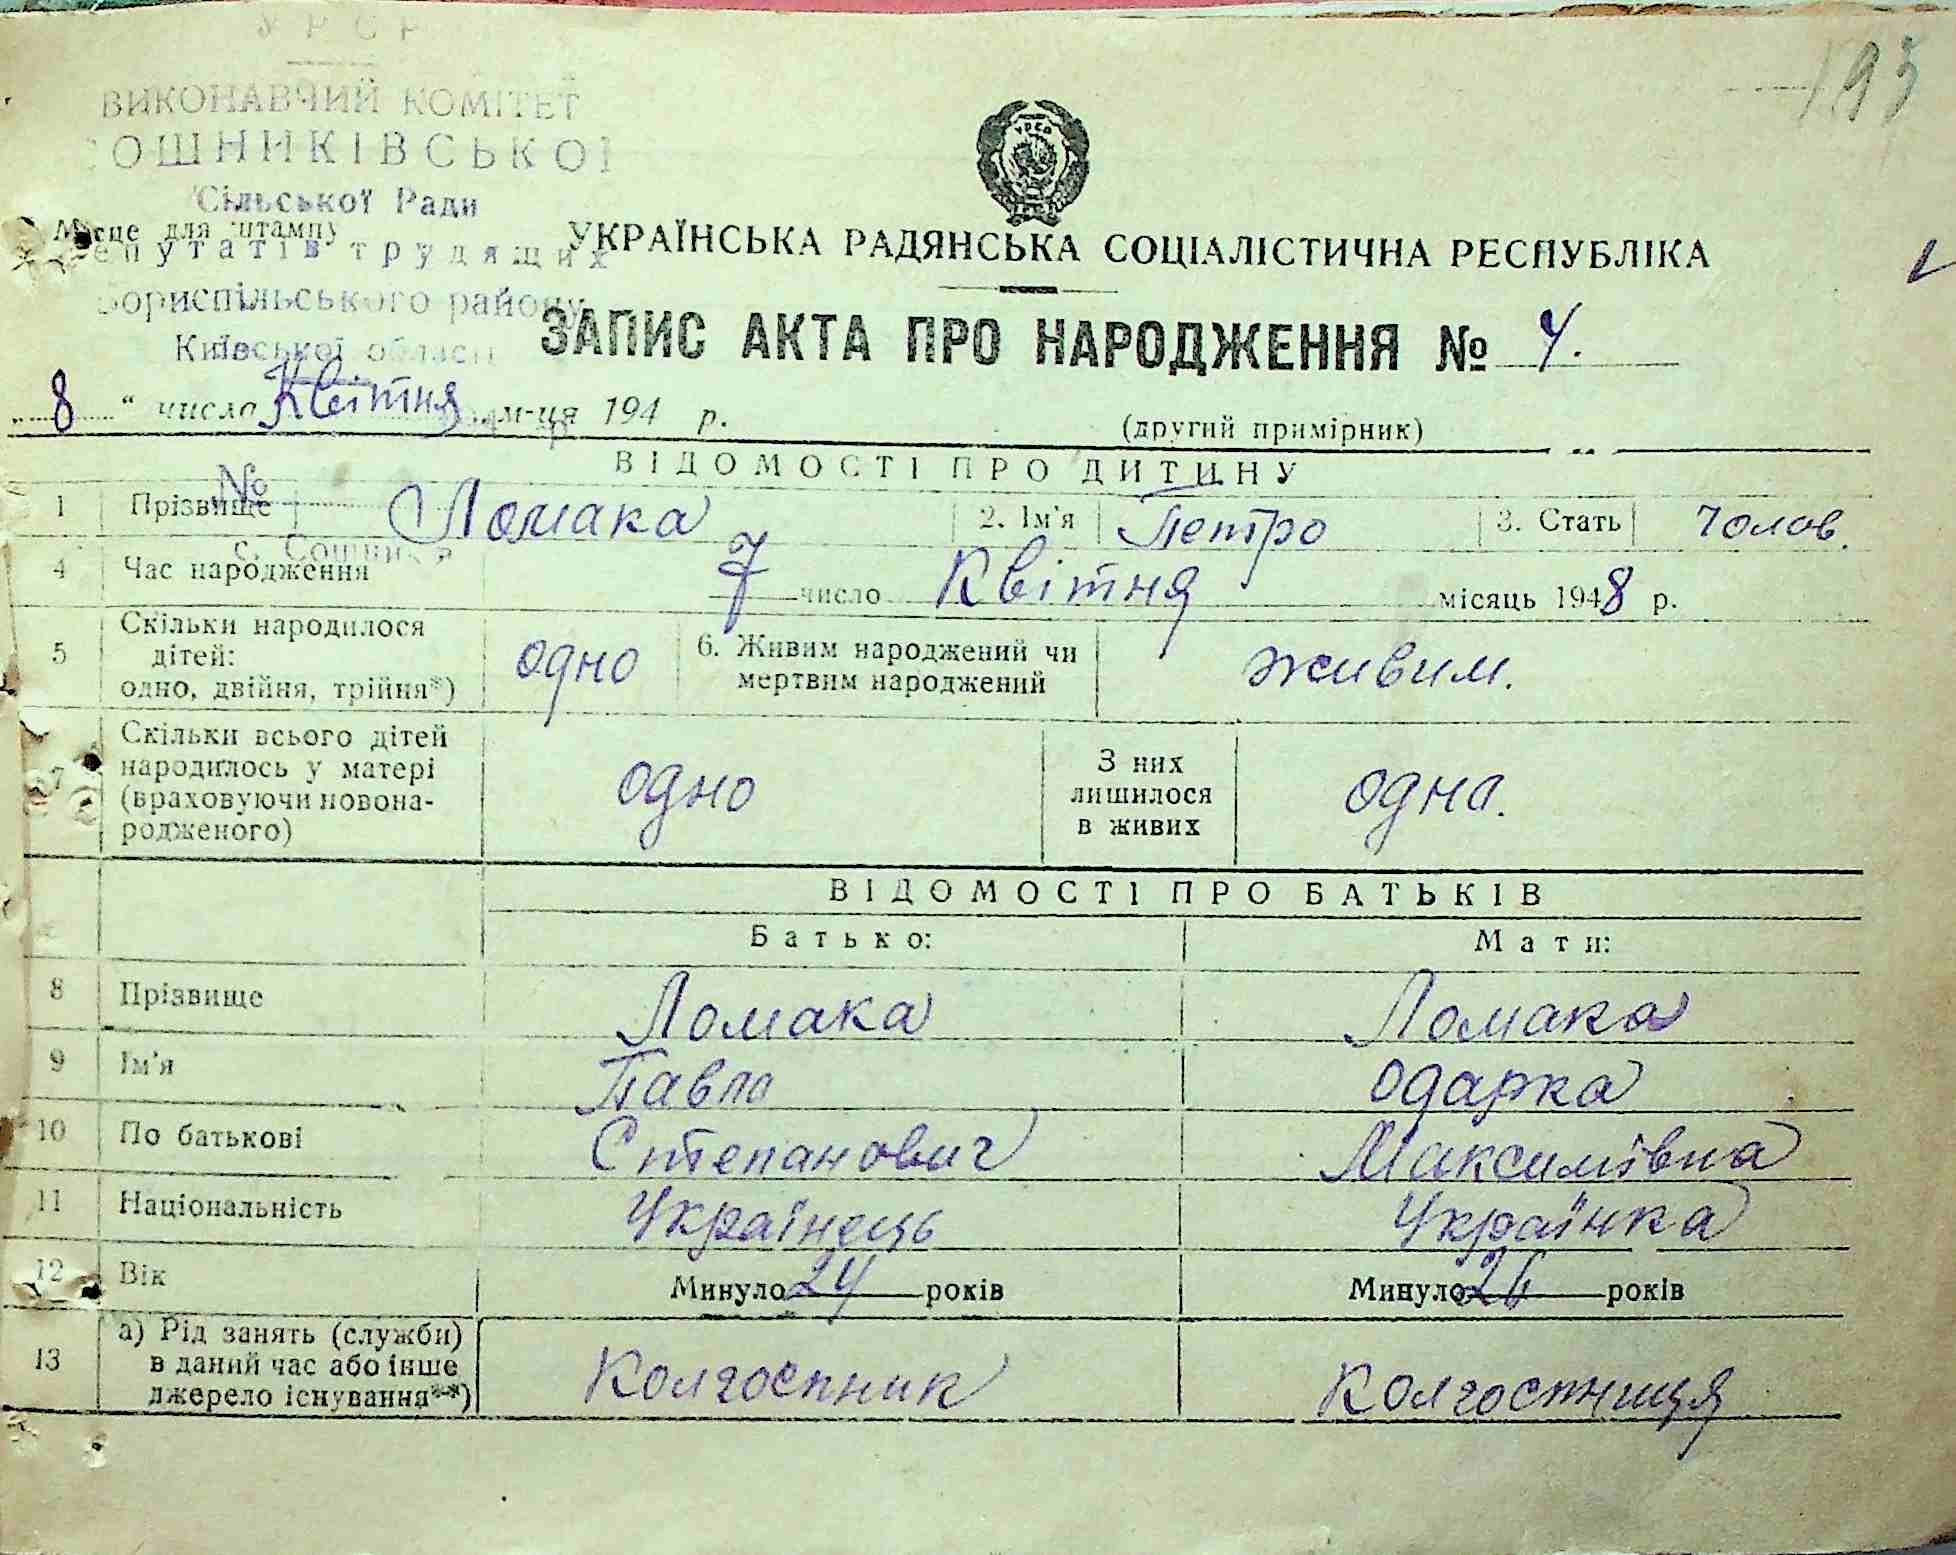 УРСР
ВИКОНАВЧИЙ КОМІТЕТ
СОШНИКІВСЬКОЇ
Сільської Ради
Місце для штампу
депутатів трудящих
Бориспільського району
Київської області
195
УКРАЇНСЬКА РАДЯНСЬКА СОЦІАЛІСТИЧНА РЕСПУБЛІКА
ЗАПИС АКТА ПРО НАРОДЖЕННЯ № 4.
„ 8 “ число Квітня м-ця 194 р.
(другий примірник)
ВІДОМОСТІ ПРО ДИТИНУ
№
1 Прізвище Ломака 2. Ім'я Петро 3. Стать Чолов.
с. Сошників
4 Час народження 7 число Квітня місяць 1948 р.
5 Скільки народилося дітей: одно, двійня, трійня*) одно 6. Живим народжений чи мертвим народжений живим.
7 Скільки всього дітей народилось у матері (враховуючи новонародженого) одно З них лишилося в живих одна.
ВІДОМОСТІ ПРО БАТЬКІВ
Батько: Мати:
8 Прізвище Ломака Ломака
9 Ім'я Павло Одарка
10 По батькові Степанович Максимівна
11 Національність Українець Українка
12 Вік Минуло 24 років Минуло 26 років
13 а) Рід занять (служби) в даний час або інше джерело існування**) Колгоспник Колгоспниця